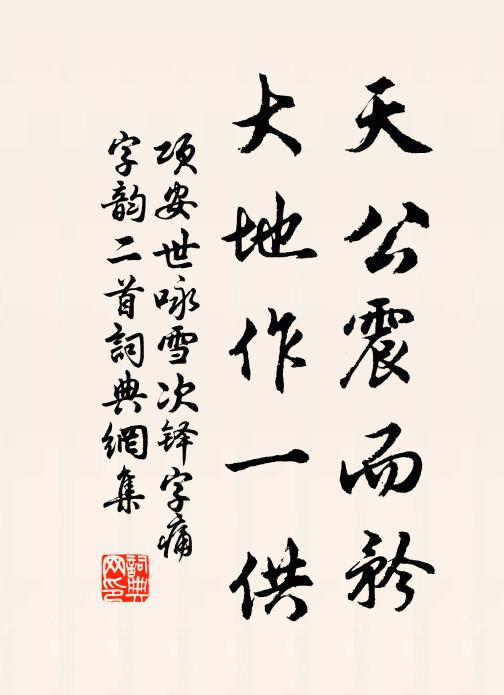 天公震而矜
大地作一供
项安世咏雪次铎字痛
字韵二首詞典網集
詞典
网印